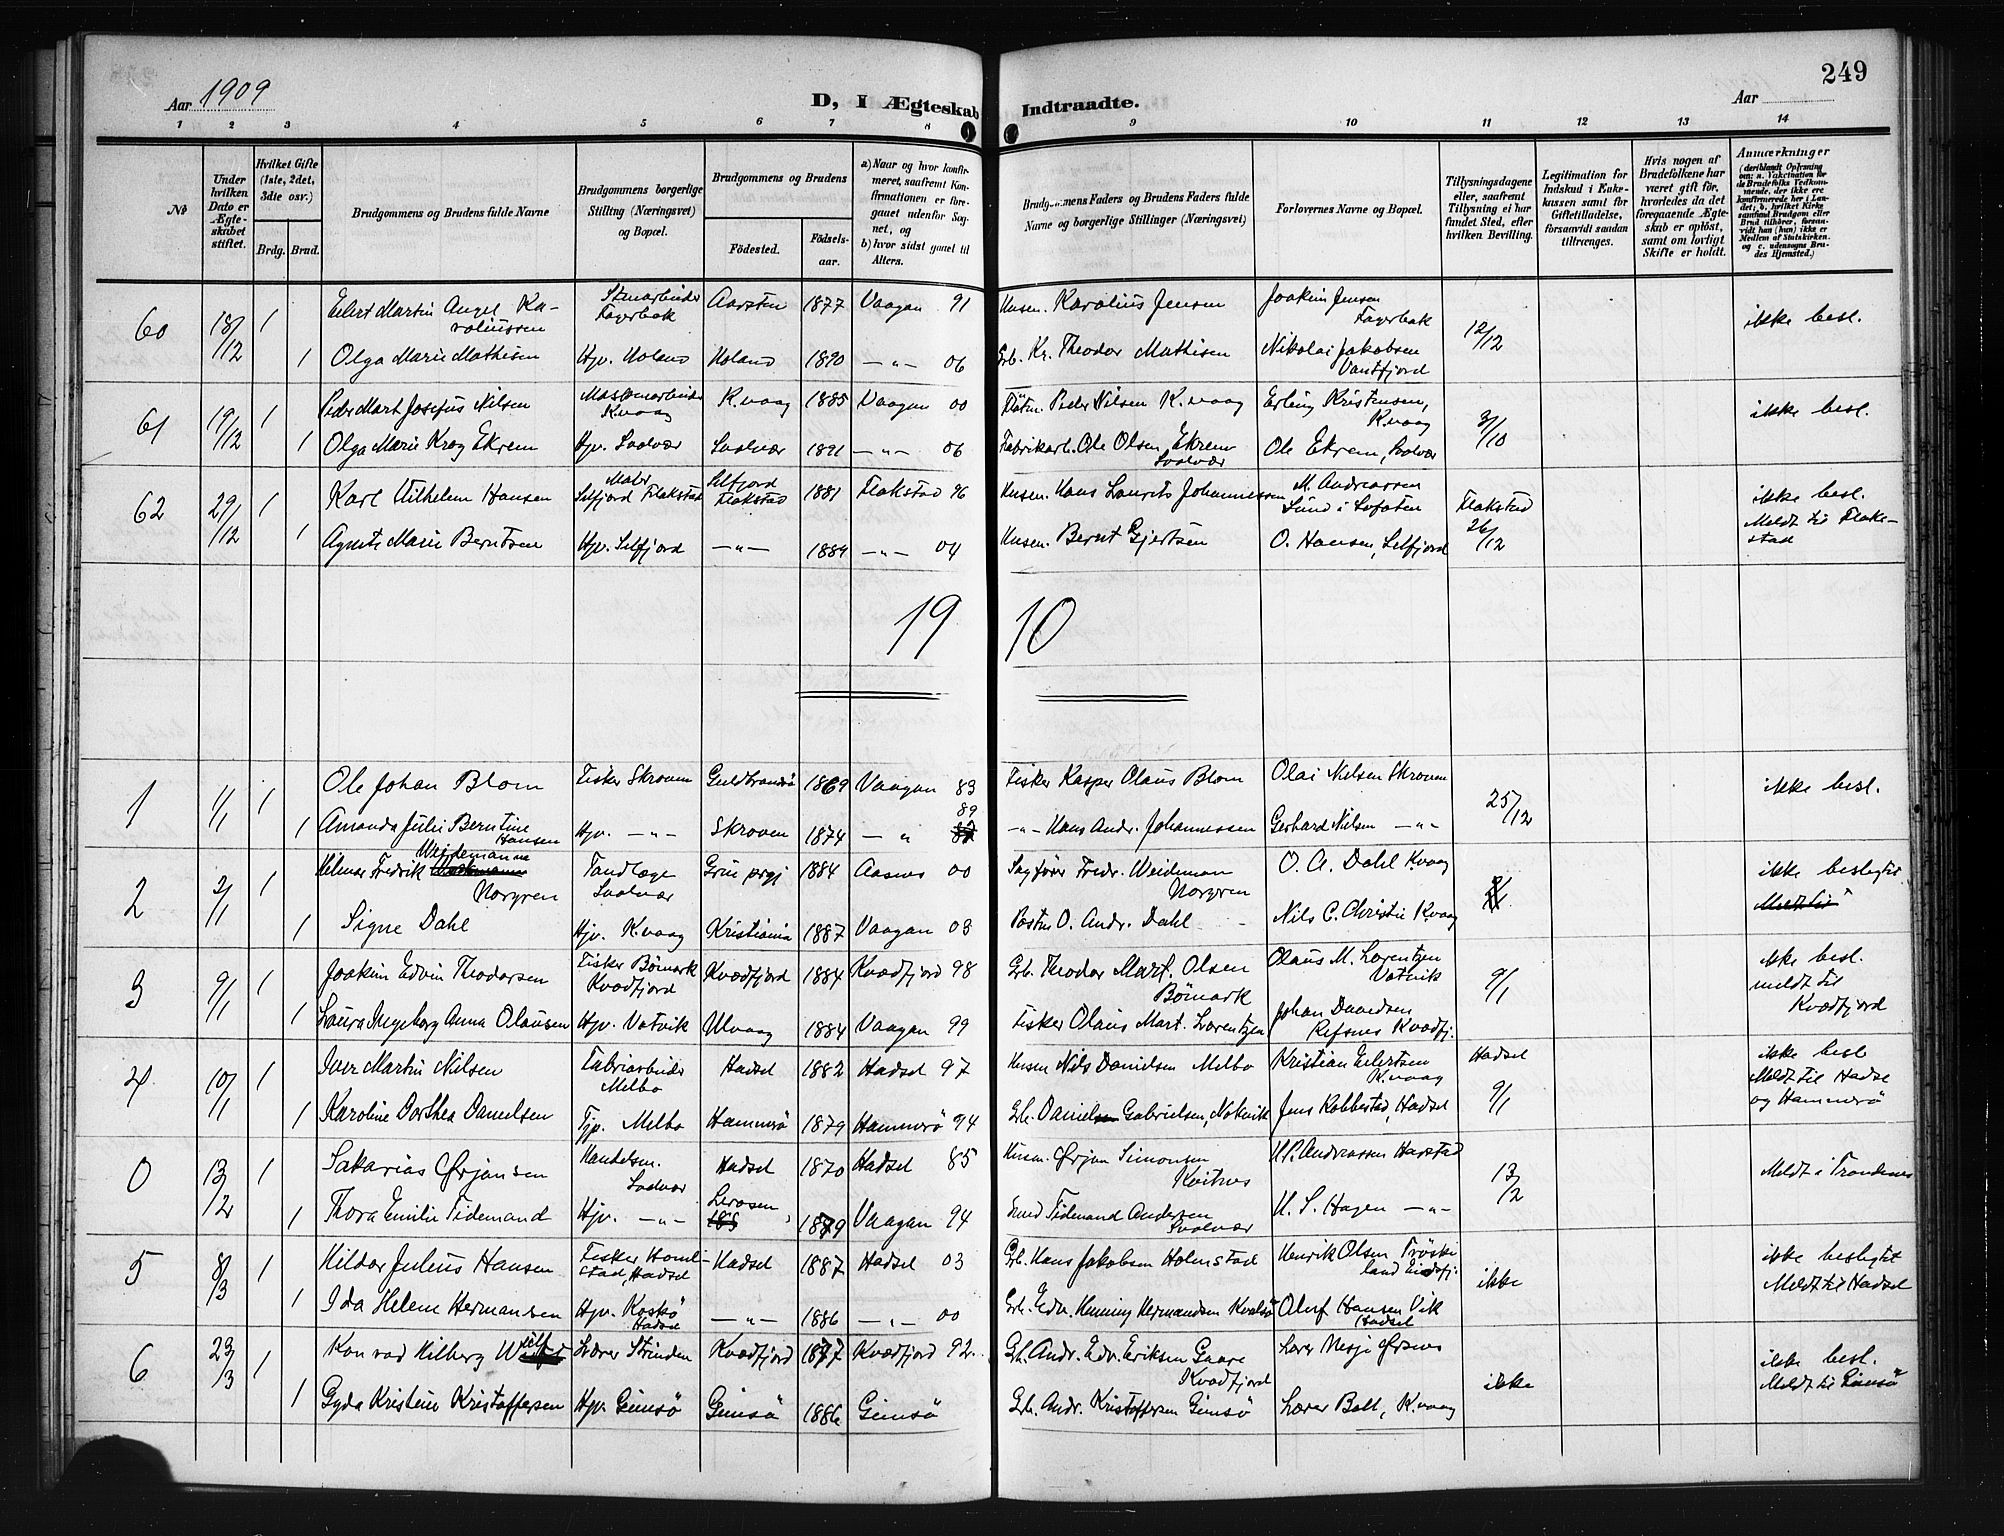 249
Aar 1909
D, I Ægteskab Indtraadte.
Aar
1 2 3 4 5 6 7 8 9 10 11 12 13 14
No
Under hvilken Dato er Ægteskabet stiftet.
Hvilket Gifte (1ste, 2det, 3die osv.)
Brdg. Brud.
Brudgommens og Brudens fulde Navne
Brudgommens borgerlige Stilling (Næringsvei) og Bopæl.
Brudgommens og Brudens
Fødested.
Fødselsaar.
a) Naar og hvor konfirmeret, saafremt Konfirmationen er foregaaet udenfor Sognet, og
b) hvor sidst gaaet til Alters.
Brudgommens Faders og Brudens Faders fulde Navne og borgerlige Stillinger (Næringsvei)
Forlovernes Navne og Bopæl.
Tillysningsdagene eller, saafremt Tillysning ei har fundet Sted, efter hvilken Bevilling.
Legitimation for Indskud i Enkekassen samt for Giftetilladelse, forsaavidt saadan tiltrænges.
Hvis nogen af Brudefolkene har været gift før, hvorledes da det foregaaende Ægteskab er opløst, samt om lovligt Skifte er holdt.
Anmærkninger
(deriblandt Oplysning om: a. Vakcination for de Brudefolks Vedkommende, der ikke ere konfirmerede her i Landet; b. hvilket Kirkesamfund Brudgom eller Brud tilhører, forsaavidt han (hun) ikke er Medlem af Statskirken, og c. udensogns Brudes Hjemsted.)
60 18/12 1 Eilert Martin Angel Karoliussen Stenarbeider Fagerbak Aarsten 1877 Vaagan 91 Husm. Karolius Jensen Joakim Jensen Fagerbak 12/12 ikke besl.
1 Olga Marie Mathisen Hjv. Holand Holand 1890 —"— 06 Grb. Kr. Theodor Mathisen Nikolai Jakobsen Vantfjord
61 19/12 1 Peder Mart Josefus Nilsen K.vaag K.vaag 1885 Vaagan 00 Peder Nilsen K.vaag Erling Kristensen, K.vaag 3/10 ikke besl.
1 Olga Marie Krog Ekrem Hjv. Svolvær Svolvær 1891 —"— 06 Fabrikarb. Ole Olsen Ekrem Svolvær Ole Ekrem, Svolvær
62 29/12 1 Karl Vilhelm Hansen Maler Selfjord Flakstad Selfjord Flakstad 1881 Flakstad 96 Husm. Hans Laurits Johannessen M. Andreassen Sund i Lofoten Flakstad 26/12 ikke besl. Meldt til Flakestad
1 Agnete Marie Berntsen Hjv. Selfjord —"— 1889 —"— 04 Husm. Bernt Gjertsen O. Hansen, Selfjord
19 10
1 1/1 1 Ole Johan Blom Fisker Skroven Guldbrandsø 1869 Vaagan 83 Fisker Kasper Olaus Blom Olai Nielsen Skroven 25/12 ikke besl.
1 Amanda Julie Berntine Hansen Hjv. —"— Skroven 1874 —"— 89 —"— Hans Andr. Johannessen Gerhard Nielsen —"—
2 2/1 1 Hilmar Fredrik Weidemann Norgren Tandlæge Svolvær Grue prgj 1884 Aasnes 00 Sagfører Fredr. Weideman Norgren O. A. Dahl Kvaag ikke beslegtet Meldt til
1 Signe Dahl Hjv. K.vaag Kristiania 1887 Vaagan 03 Postm O. Andr. Dahl Nils C. Christie Kvaag
3 9/1 1 Joakim Edvin Theodorsen Fisker Bömark Kvædfjord Kvædfjord 1884 Kvædfjord 98 Grb. Theodor Mart. Olsen Bömark Olaus M. Lorentzen Vatvik 9/1 ikke besl. meldt til Kvædfjord
1 Laura Ingeborg Anna Olausen Hjv. Vatvik Ulvaag 1884 Vaagan 99 Fisker Olaus Mart. Lorentzen Johan Davidsen Refsnes Kvædfj.
4 10/1 1 Iver Martin Nilsen Fabriarbeider Melbo Hadsel 1882 Hadsel 97 Husm Nils Danielsen Melbo Kristian Eilertsen K.vaag Hadsel 9/1 ikke besl Meldt til Hadse og Hammerø
1 Karoline Dorthea Danielsen Tjp. Melbo Hammerø 1879 Hammerø 94 Grb. Daniel Gabrielsen, Notvik Jens Kobbestad, Hadsel
0 13/2 1 Sakarias Ørjansen Handelsm. Svolvær Hadsel 1870 Hadsel 85 Husm. Ørjan Simonsen Kvitnes H.P. Andreassen Harstad 13/2 Meldt i Trondenes
1 Thora Emilie Tidemand Hjv. —"— 1879 Vaagan 94 Tidemand Andersen Svolvær H. S. Hagen —"—
5 8/3 1 Hildor Julius Hansen Fisker Homlstad, Hadsel Hadsel 1887 Hadsel 03 Grb. Hans Jakobsen Holmstad Henrik Olsen Trøskeland Eidsfj. ikke ikke beslegtet Meldt til Hadsel
1 Ida Helene Hermansen Hjv. Koskø Hadsel —"— 1886 —"— 00 Grb. Edv. Henning Hermandsen Oluf Hansen Vik Hadsel
6 23/3 1 Konrad Hilberg Lærer Strinden Kvædfjord 1877 Kvædfjord 92. Grb. Andr. Edv. Eriksen Gaare Kvædfjord Lærer Nesje Ørsnes ikke ikke besl. Meldt til Gimsø
1 Gyda Kristine Kristoffersen Hjv. Gimsø Gimsø 1886 Gimsø Grb. Andr. Kristoffersen Gimsø Lærer Boll, K.vaag